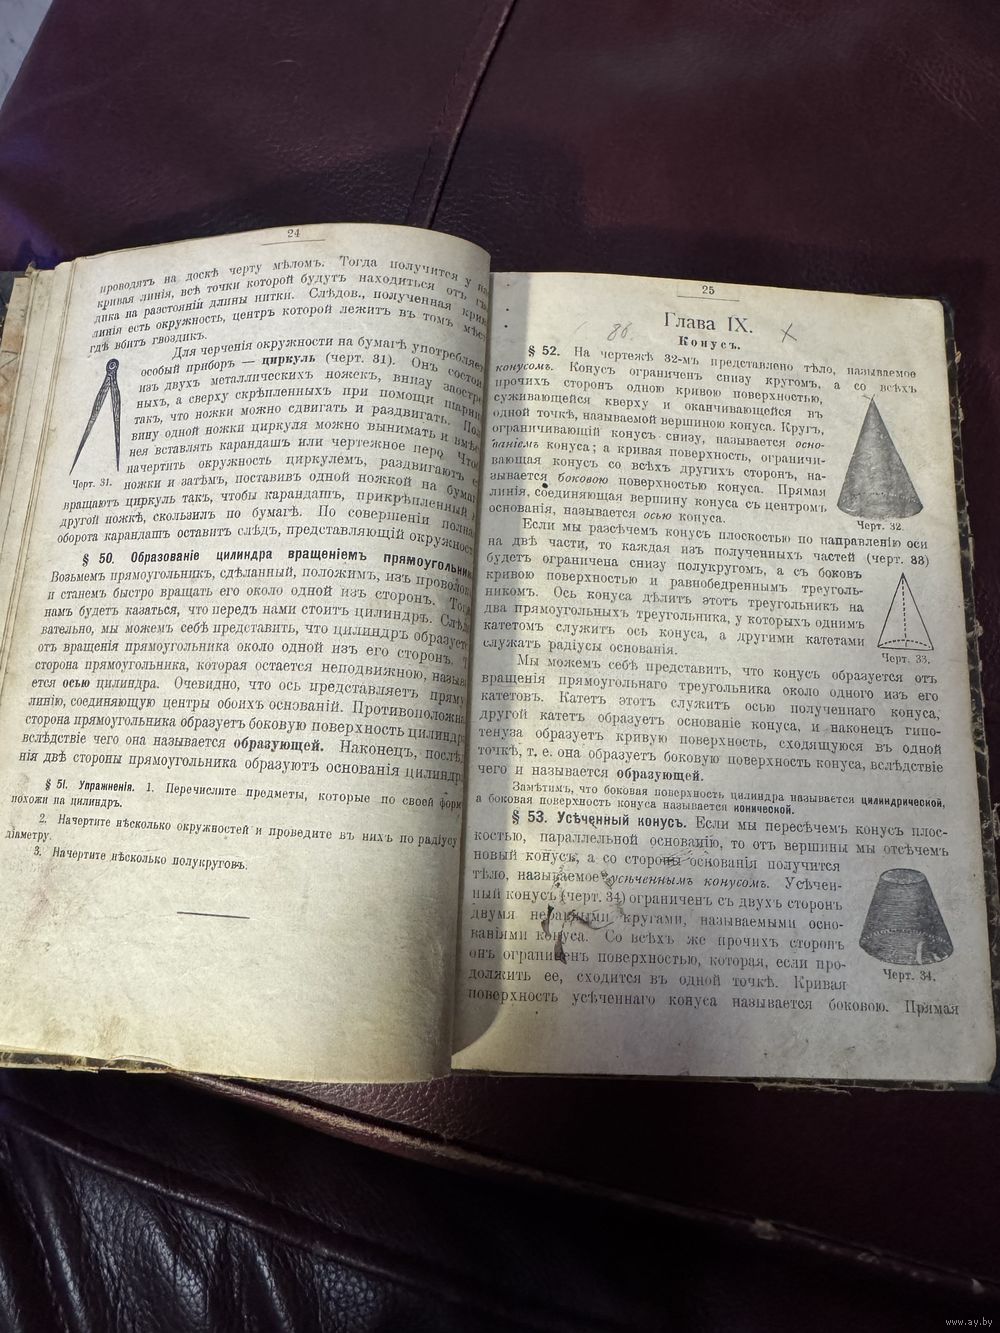 24
проводятъ на доскѣ черту мѣломъ. Тогда получится у
кривая линія, всѣ точки которой будутъ находиться отъ
дика на разстояніи длины нитки. Слѣдов., полученная
линія есть окружность, центръ которой лежитъ въ томъ
гдѣ вбитъ гвоздикъ.
Для черченія окружности на бумагѣ
особый приборъ — циркуль (черт. 31). Онъ
изъ двухъ металлическихъ ножекъ, внизу
ныхъ, а сверху скрѣпленныхъ при помощи
такъ, что ножки можно сдвигать и раздвигать.
вину одной ножки циркуля можно вынимать и
нея вставлять карандашъ или чертежное перо.
начертить окружность циркулемъ, раздвигаютъ
Черт. 31. ножки и затѣмъ, поставивъ одной ножкой на
вращаютъ циркуль такъ, чтобы карандашъ, прикрѣпленный
другой ножкѣ, скользилъ по бумагѣ. По совершеніи
оборота карандашъ оставитъ слѣдъ, представляющій
§ 50. Образованіе цилиндра вращеніемъ
Возьмемъ прямоугольникъ, сдѣланный, положимъ, изъ
и станемъ быстро вращать его около одной изъ сторонъ.
намъ будетъ казаться, что передъ нами стоитъ цилиндръ.
вательно, мы можемъ себѣ представить, что цилиндръ
отъ вращенія прямоугольника около одной изъ его сторонъ.
сторона прямоугольника, которая остается неподвижною,
ется осью цилиндра. Очевидно, что ось представляетъ
линію, соединяющую центры обоихъ основаній.
сторона прямоугольника образуетъ боковую поверхность
вслѣдствіе чего она называется образующей. Наконецъ,
нія двѣ стороны прямоугольника образуютъ основанія
§ 51. Упражненія. 1. Перечислите предметы, которые по своей
похожи на цилиндръ.
2. Начертите нѣсколько окружностей и проведите въ нихъ по радіусу
діаметру.
3. Начертите нѣсколько полукруговъ.
25
86.
Глава IX.
Конусъ.
§ 52. На чертежѣ 32-мъ представлено тѣло, называемое
конусомъ. Конусъ ограниченъ снизу кругомъ, а со всѣхъ
прочихъ сторонъ одною кривою поверхностью,
суживающейся кверху и оканчивающейся въ
одной точкѣ, называемой вершиною конуса. Кругъ,
ограничивающій конусъ снизу, называется осно-
ваніемъ конуса; а кривая поверхность, ограничи-
вающая конусъ со всѣхъ другихъ сторонъ, на-
зывается боковою поверхностью конуса. Прямая
линія, соединяющая вершину конуса съ центромъ
основанія, называется осью конуса.
Черт. 32.
Если мы разсѣчемъ конусъ плоскостью по направленію оси
на двѣ части, то каждая изъ полученныхъ частей (черт. 33)
будетъ ограничена снизу полукругомъ, а съ боковъ
кривою поверхностью и равнобедреннымъ треуголь-
никомъ. Ось конуса дѣлитъ этотъ треугольникъ на
два прямоугольныхъ треугольника, у которыхъ однимъ
катетомъ служитъ ось конуса, а другими катетами
служатъ радіусы основанія.
Черт. 33.
Мы можемъ себѣ представить, что конусъ образуется отъ
вращенія прямоугольнаго треугольника около одного изъ его
катетовъ. Катетъ этотъ служитъ осью полученнаго конуса,
другой катетъ образуетъ основаніе конуса, и наконецъ гипо-
тенуза образуетъ кривую поверхность, сходящуюся въ одной
точкѣ, т. е. она образуетъ боковую поверхность конуса, вслѣдствіе
чего и называется образующей.
Замѣтимъ, что боковая поверхность цилиндра называется цилиндрической,
а боковая поверхность конуса называется конической.
§ 53. Усѣченный конусъ. Если мы пересѣчемъ конусъ плос-
костью, параллельной основанію, то отъ вершины мы отсѣчемъ
новый конусъ, а со стороны основанія получится
тѣло, называемое усѣченнымъ конусомъ. Усѣчен-
ный конусъ (черт. 34) ограниченъ съ двухъ сторонъ
двумя неравными кругами, называемыми осно-
ваніями конуса. Со всѣхъ же прочихъ сторонъ
онъ ограниченъ поверхностью, которая, если про-
должить ее, сходится въ одной точкѣ. Кривая
Черт. 34.
поверхность усѣченнаго конуса называется боковою. Прямая
www.ay.by